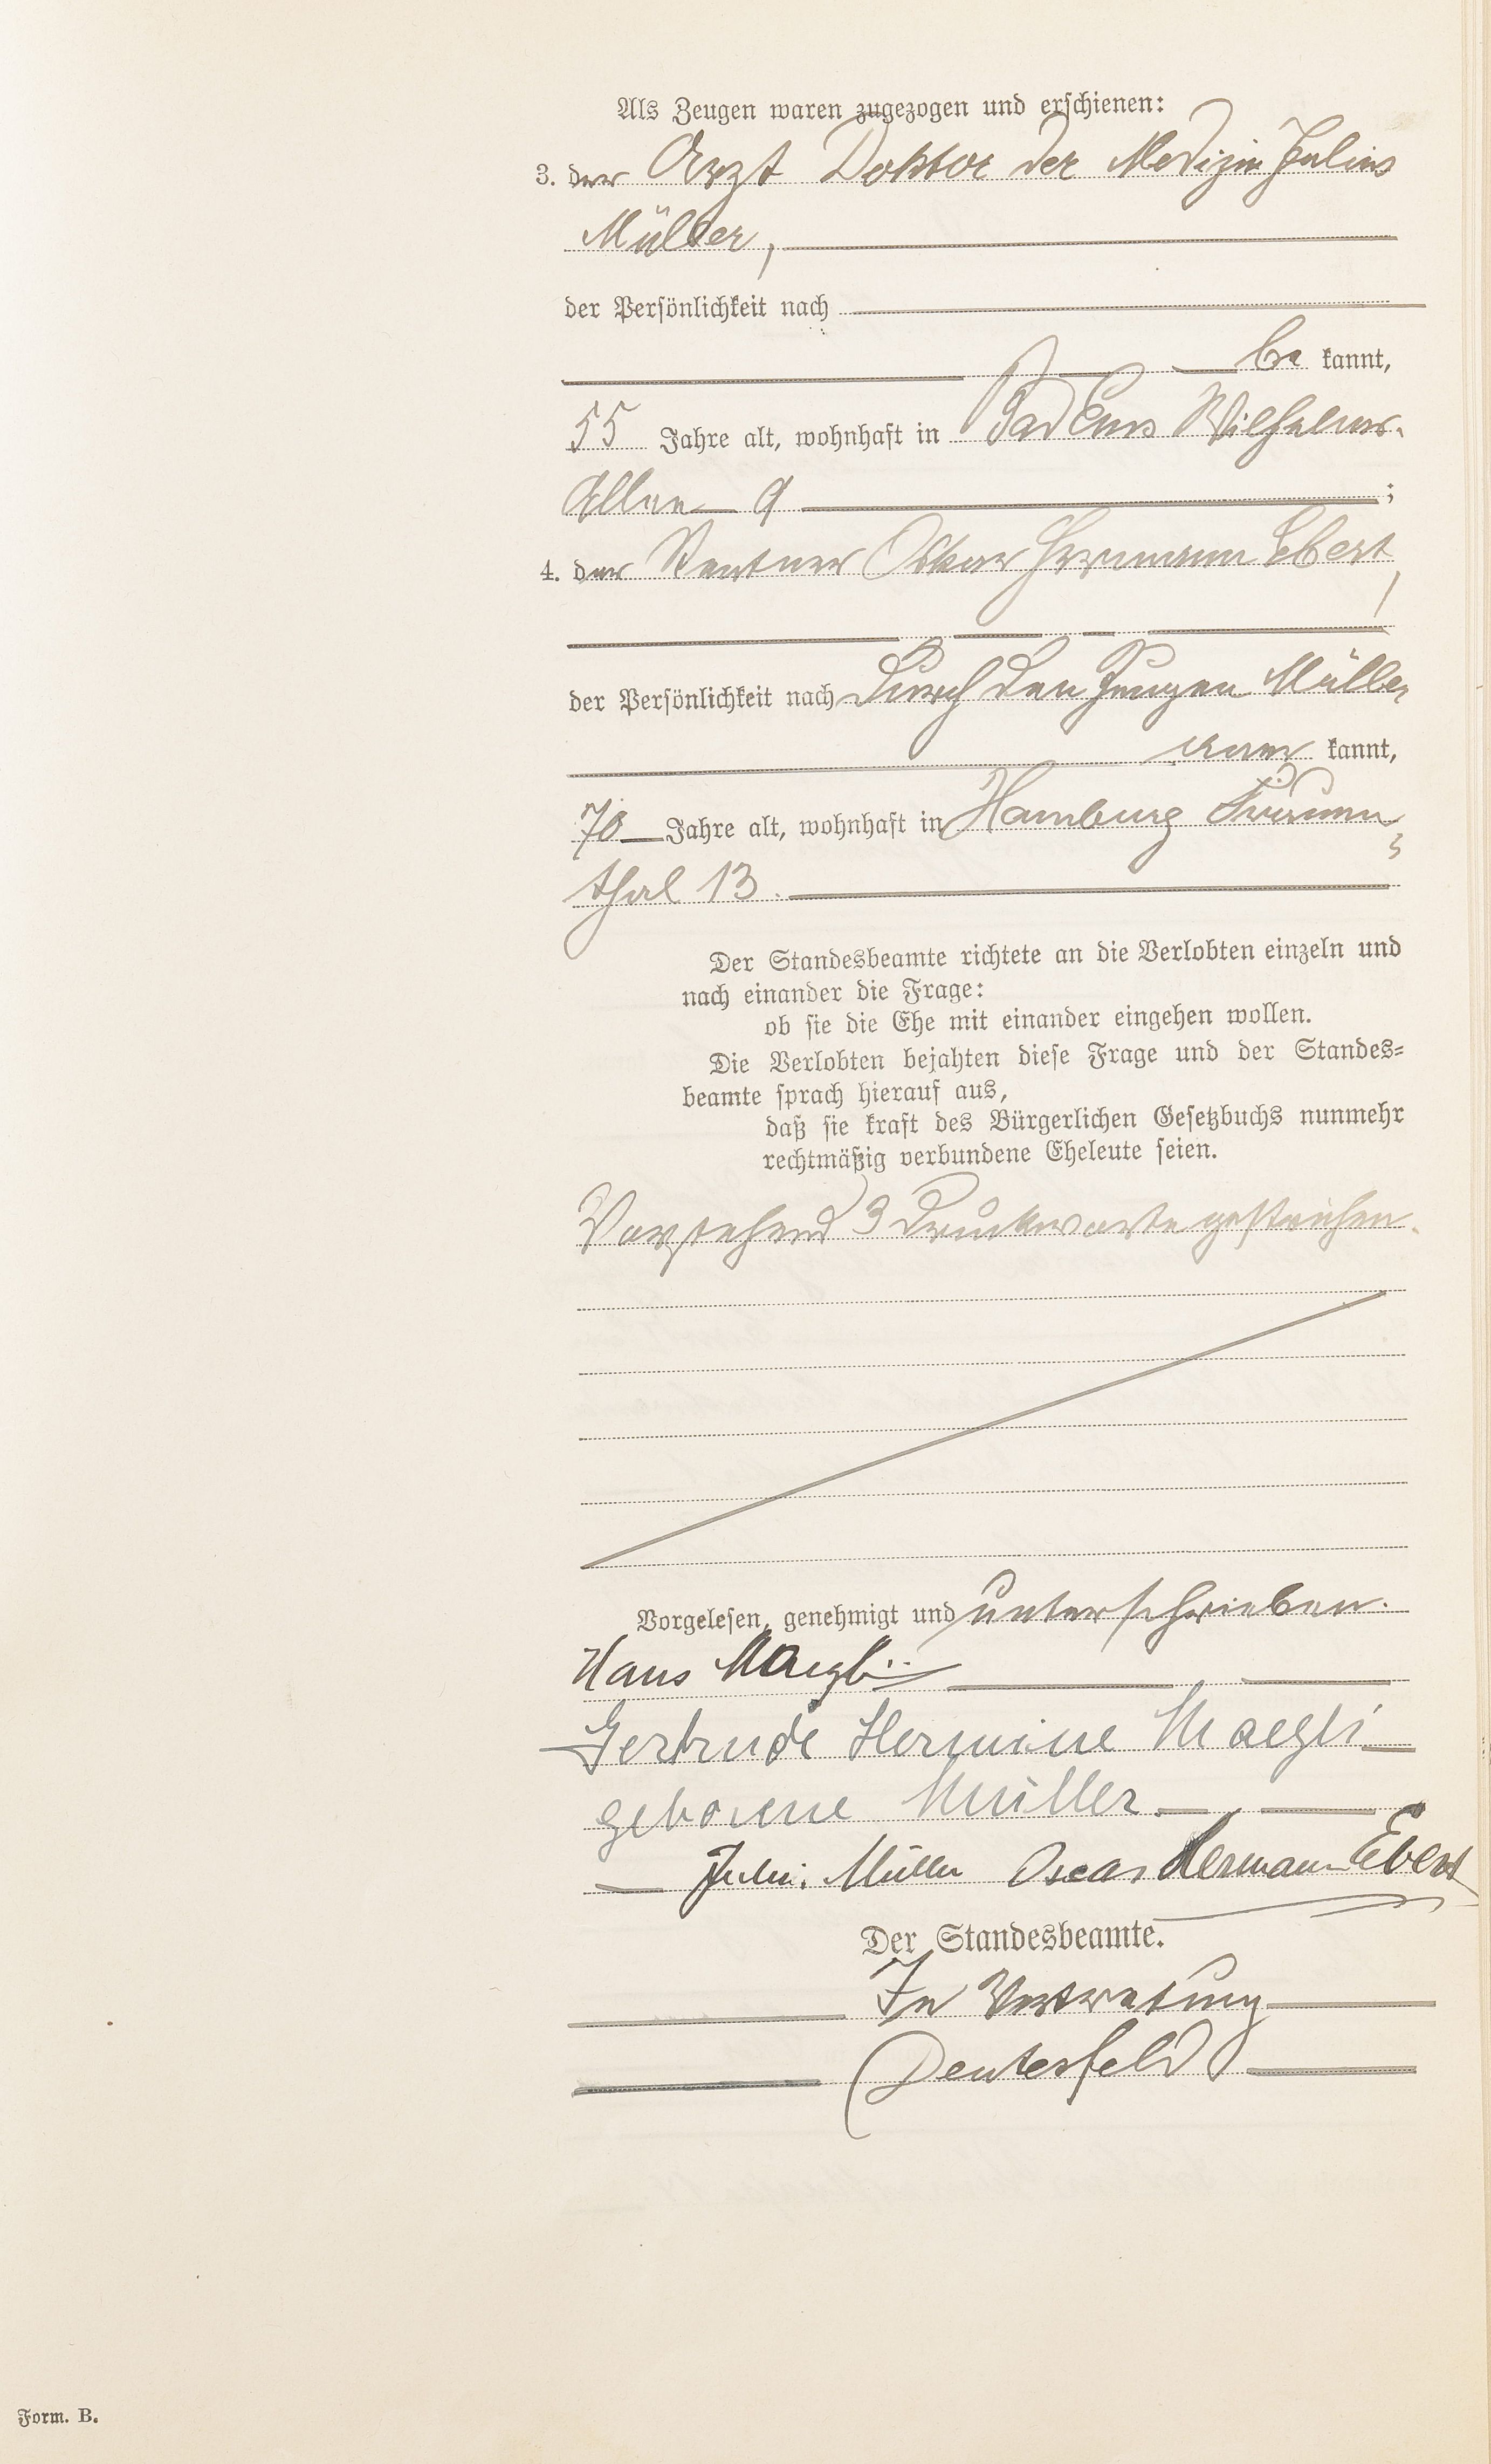 Als Zeugen waren zugezogen und erschienen:
3. der Arzt Doktor der Medizin Julius
Müller,
der Persönlichkeit nach
be kannt,
55 Jahre alt, wohnhaft in Bad Ems Wilhelms-
Allee 9 ;
4. der Rentner Oskar Hermann Ebert
,
der Persönlichkeit nach durch den Zeugen Müller
aner kannt,
70 Jahre alt, wohnhaft in Hamburg
thal 13.
Der Standesbeamte richtete an die Verlobten einzeln und
nach einander die Frage:
ob sie die Ehe mit einander eingehen wollen.
Die Verlobten bejahten diese Frage und der Standes-
beamte sprach hierauf aus,
daß sie kraft des Bürgerlichen Gesetzbuchs nunmehr
rechtmäßig verbundene Eheleute seien.
Vorstehend 3 Druckworte gestrichen.
Vorgelesen, genehmigt und unterschrieben.
Hans Maegli
Gertrude Hermine Maegli
geborene Müller
Julius Müller Oscar Hermann Ebert
Der Standesbeamte.
In Vertretung
Deutesfeld
Form. B.